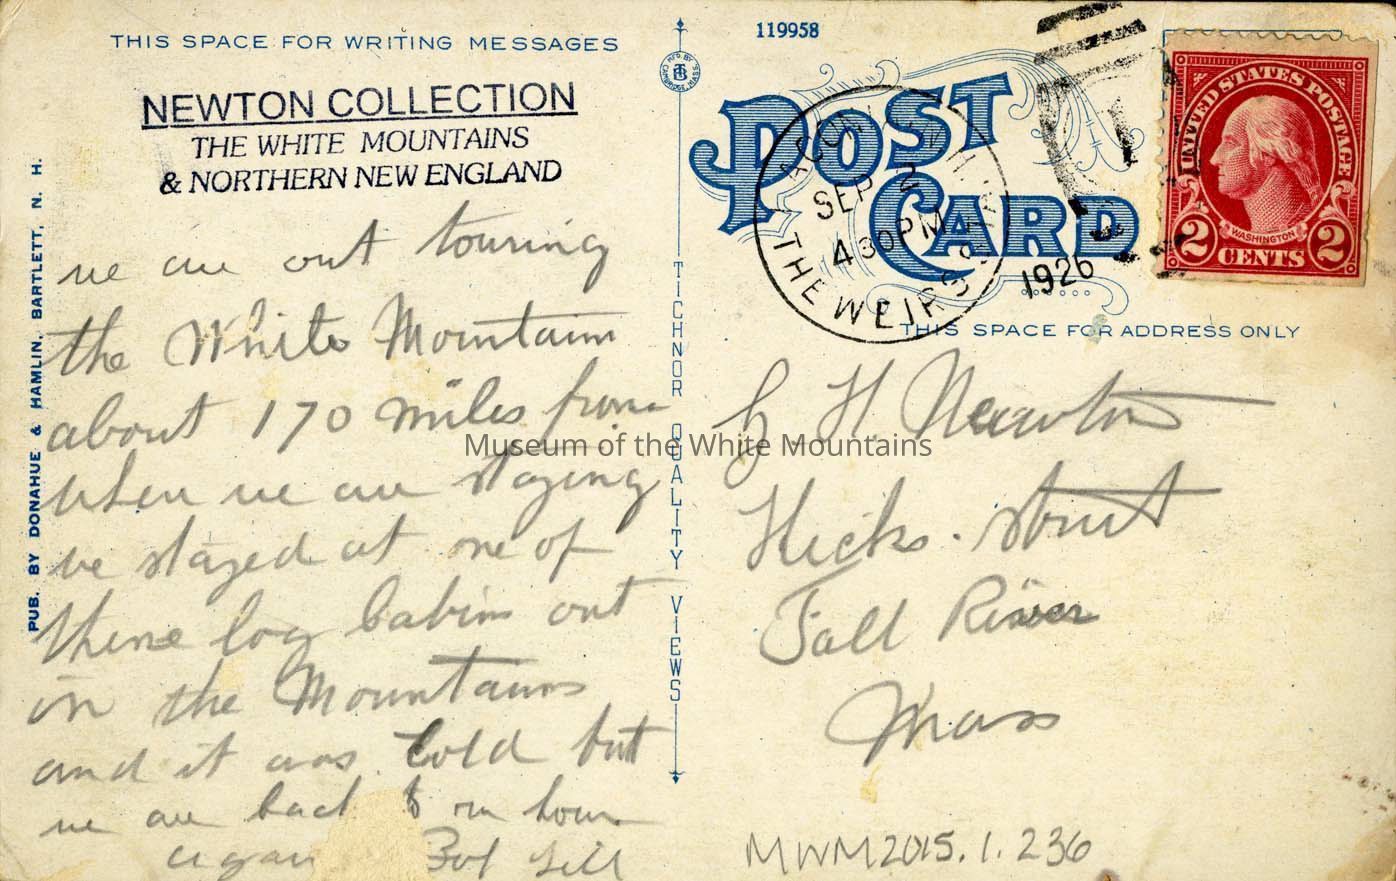 THIS SPACE FOR WRITING MESSAGES
NEWTON COLLECTION
THE WHITE MOUNTAINS
& NORTHERN NEW ENGLAND
PUB. BY DONAHUE & HAMLIN, BARTLETT, N. H.
we are out touring
the White Mountains
about 170 miles from
when we are staying
we stayed at one of
these log Cabins out
in the Mountains
and it was Cold but
we are back in
again
TICHNOR QUALITY VIEWS
MF'D BY
CAMBRIDGE, MASS.
119958
POST CARD
SEP 2
4 30 PM
1926
THE WEIRS
UNITED STATES POSTAGE
WASHINGTON
2 CENTS 2
THIS SPACE FOR ADDRESS ONLY
H. Newton
Hicks. Street
Fall River
Mass
MWM2015.1.236
Museum of the White Mountains